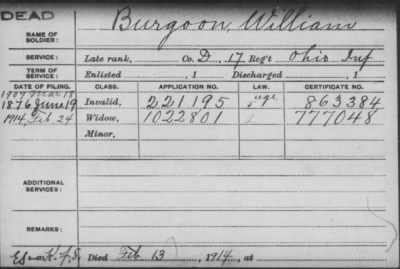 DEAD
NAME OF SOLDIER: Burgoon, William
SERVICE: Late rank, Co. D, 17 Reg't Ohio Inf
TERM OF SERVICE: Enlisted , 1 Discharged , 1
DATE OF FILING. CLASS. APPLICATION NO. LAW. CERTIFICATE NO.
1907 Mar 18 age
1876 June 19 Invalid, 221195 863384
1914, Feb 24 Widow, 1022801 777048
Minor,
ADDITIONAL SERVICES:
REMARKS:
Died Feb 13, 1914, at